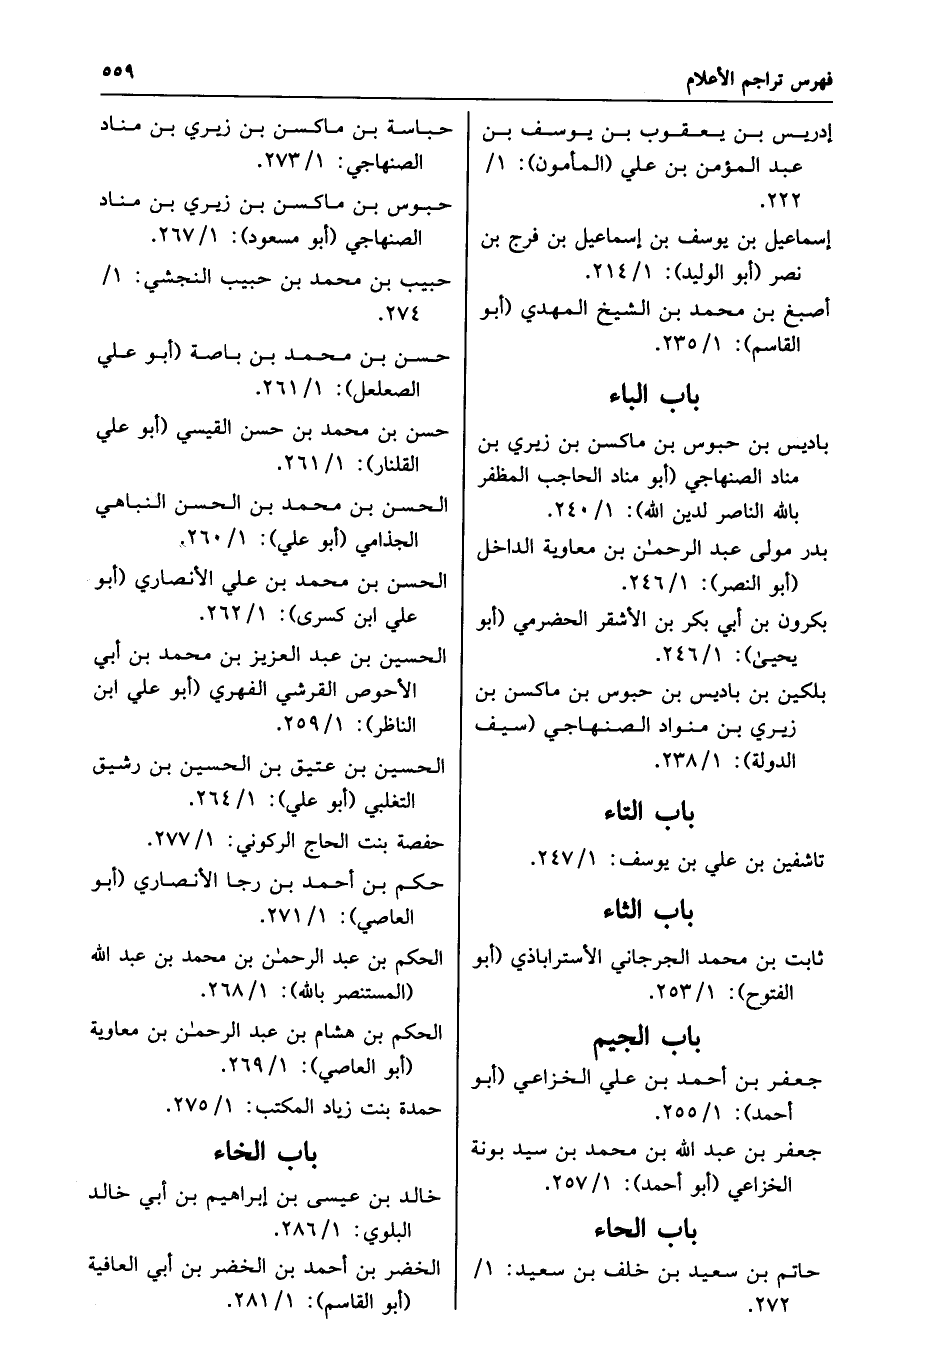 فهرس تراجم الأعلام
٥٥٩
إدريس بن يعقوب بن يوسف بن
عبد المؤمن بن علي (المأمون): ١/
٢٢٢.
إسماعيل بن يوسف بن إسماعيل بن فرج بن
نصر (أبو الوليد): ١/ ٢١٤.
أصبغ بن محمد بن الشيخ المهدي (أبو
القاسم): ١/ ٢٣٥.
باب الباء
باديس بن حبوس بن ماكسن بن زيري بن
مناد الصنهاجي (أبو مناد الحاجب المظفر
بالله الناصر لدين الله): ١/ ٢٤٠.
بدر مولى عبد الرحمٰن بن معاوية الداخل
(أبو النصر): ١/ ٢٤٦.
بكرون بن أبي بكر بن الأشقر الحضرمي (أبو
يحيىٰ): ١/ ٢٤٦.
بلكين بن باديس بن حبوس بن ماكسن بن
زيري بن منواد الصنهاجي (سيف
الدولة): ١/ ٢٣٨.
باب التاء
تاشفين بن علي بن يوسف: ١/ ٢٤٧.
باب الثاء
ثابت بن محمد الجرجاني الأستراباذي (أبو
الفتوح): ١/ ٢٥٣.
باب الجيم
جعفر بن أحمد بن علي الخزاعي (أبو
أحمد): ١/ ٢٥٥.
جعفر بن عبد الله بن محمد بن سيد بونة
الخزاعي (أبو أحمد): ١/ ٢٥٧.
باب الحاء
حاتم بن سعيد بن خلف بن سعيد: ١/
٢٧٢.
حباسة بن ماكسن بن زيري بن مناد
الصنهاجي: ١/ ٢٧٣.
حبوس بن ماكسن بن زيري بن مناد
الصنهاجي (أبو مسعود): ١/ ٢٦٧.
حبيب بن محمد بن حبيب النجشي: ١/
٢٧٤.
حسن بن محمد بن باصة (أبو علي
الصعلعل): ١/ ٢٦١.
حسن بن محمد بن حسن القيسي (أبو علي
القلنار): ١/ ٢٦١.
الحسن بن محمد بن الحسن النباهي
الجذامي (أبو علي): ١/ ٢٦٠.
الحسن بن محمد بن علي الأنصاري (أبو
علي ابن كسرى): ١/ ٢٦٢.
الحسين بن عبد العزيز بن محمد بن أبي
الأحوص القرشي الفهري (أبو علي ابن
الناظر): ١/ ٢٥٩.
الحسين بن عتيق بن الحسين بن رشيق
التغلبي (أبو علي): ١/ ٢٦٤.
حفصة بنت الحاج الركوني: ١/ ٢٧٧.
حكم بن أحمد بن رجا الأنصاري (أبو
العاصي): ١/ ٢٧١.
الحكم بن عبد الرحمٰن بن محمد بن عبد الله
(المستنصر بالله): ١/ ٢٦٨.
الحكم بن هشام بن عبد الرحمٰن بن معاوية
(أبو العاصي): ١/ ٢٦٩.
حمدة بنت زياد المكتب: ١/ ٢٧٥.
باب الخاء
خالد بن عيسى بن إبراهيم بن أبي خالد
البلوي: ١/ ٢٨٦.
الخضر بن أحمد بن الخضر بن أبي العافية
(أبو القاسم): ١/ ٢٨١.